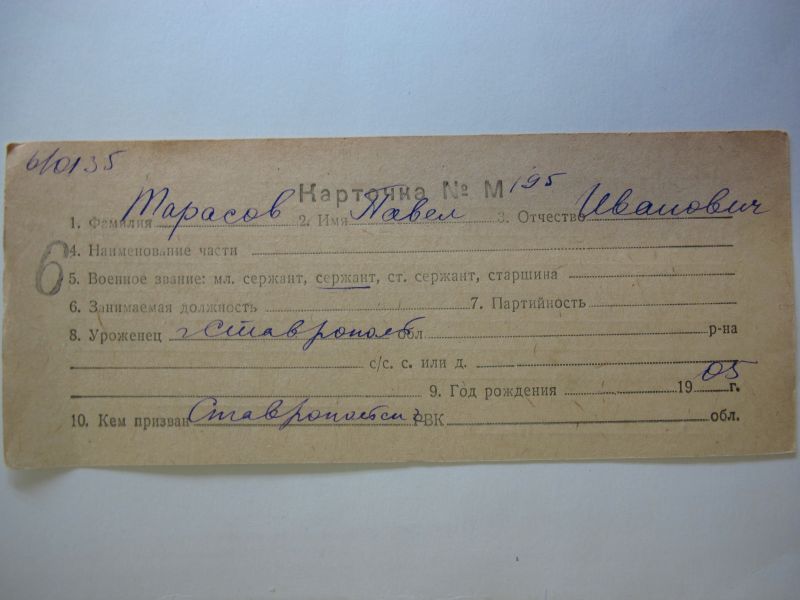 6/0135
Карточка № М 195
1. Фамилия Тарасов 2. Имя Павел 3. Отчество Иванович
6
4. Наименование части
5. Военное звание: мл. сержант, сержант, ст. сержант, старшина
6. Занимаемая должность 7. Партийность
8. Уроженец г. Ставрополь обл р-на
с/с. с. или д.
9. Год рождения 1905 г.
10. Кем призван РВК обл.